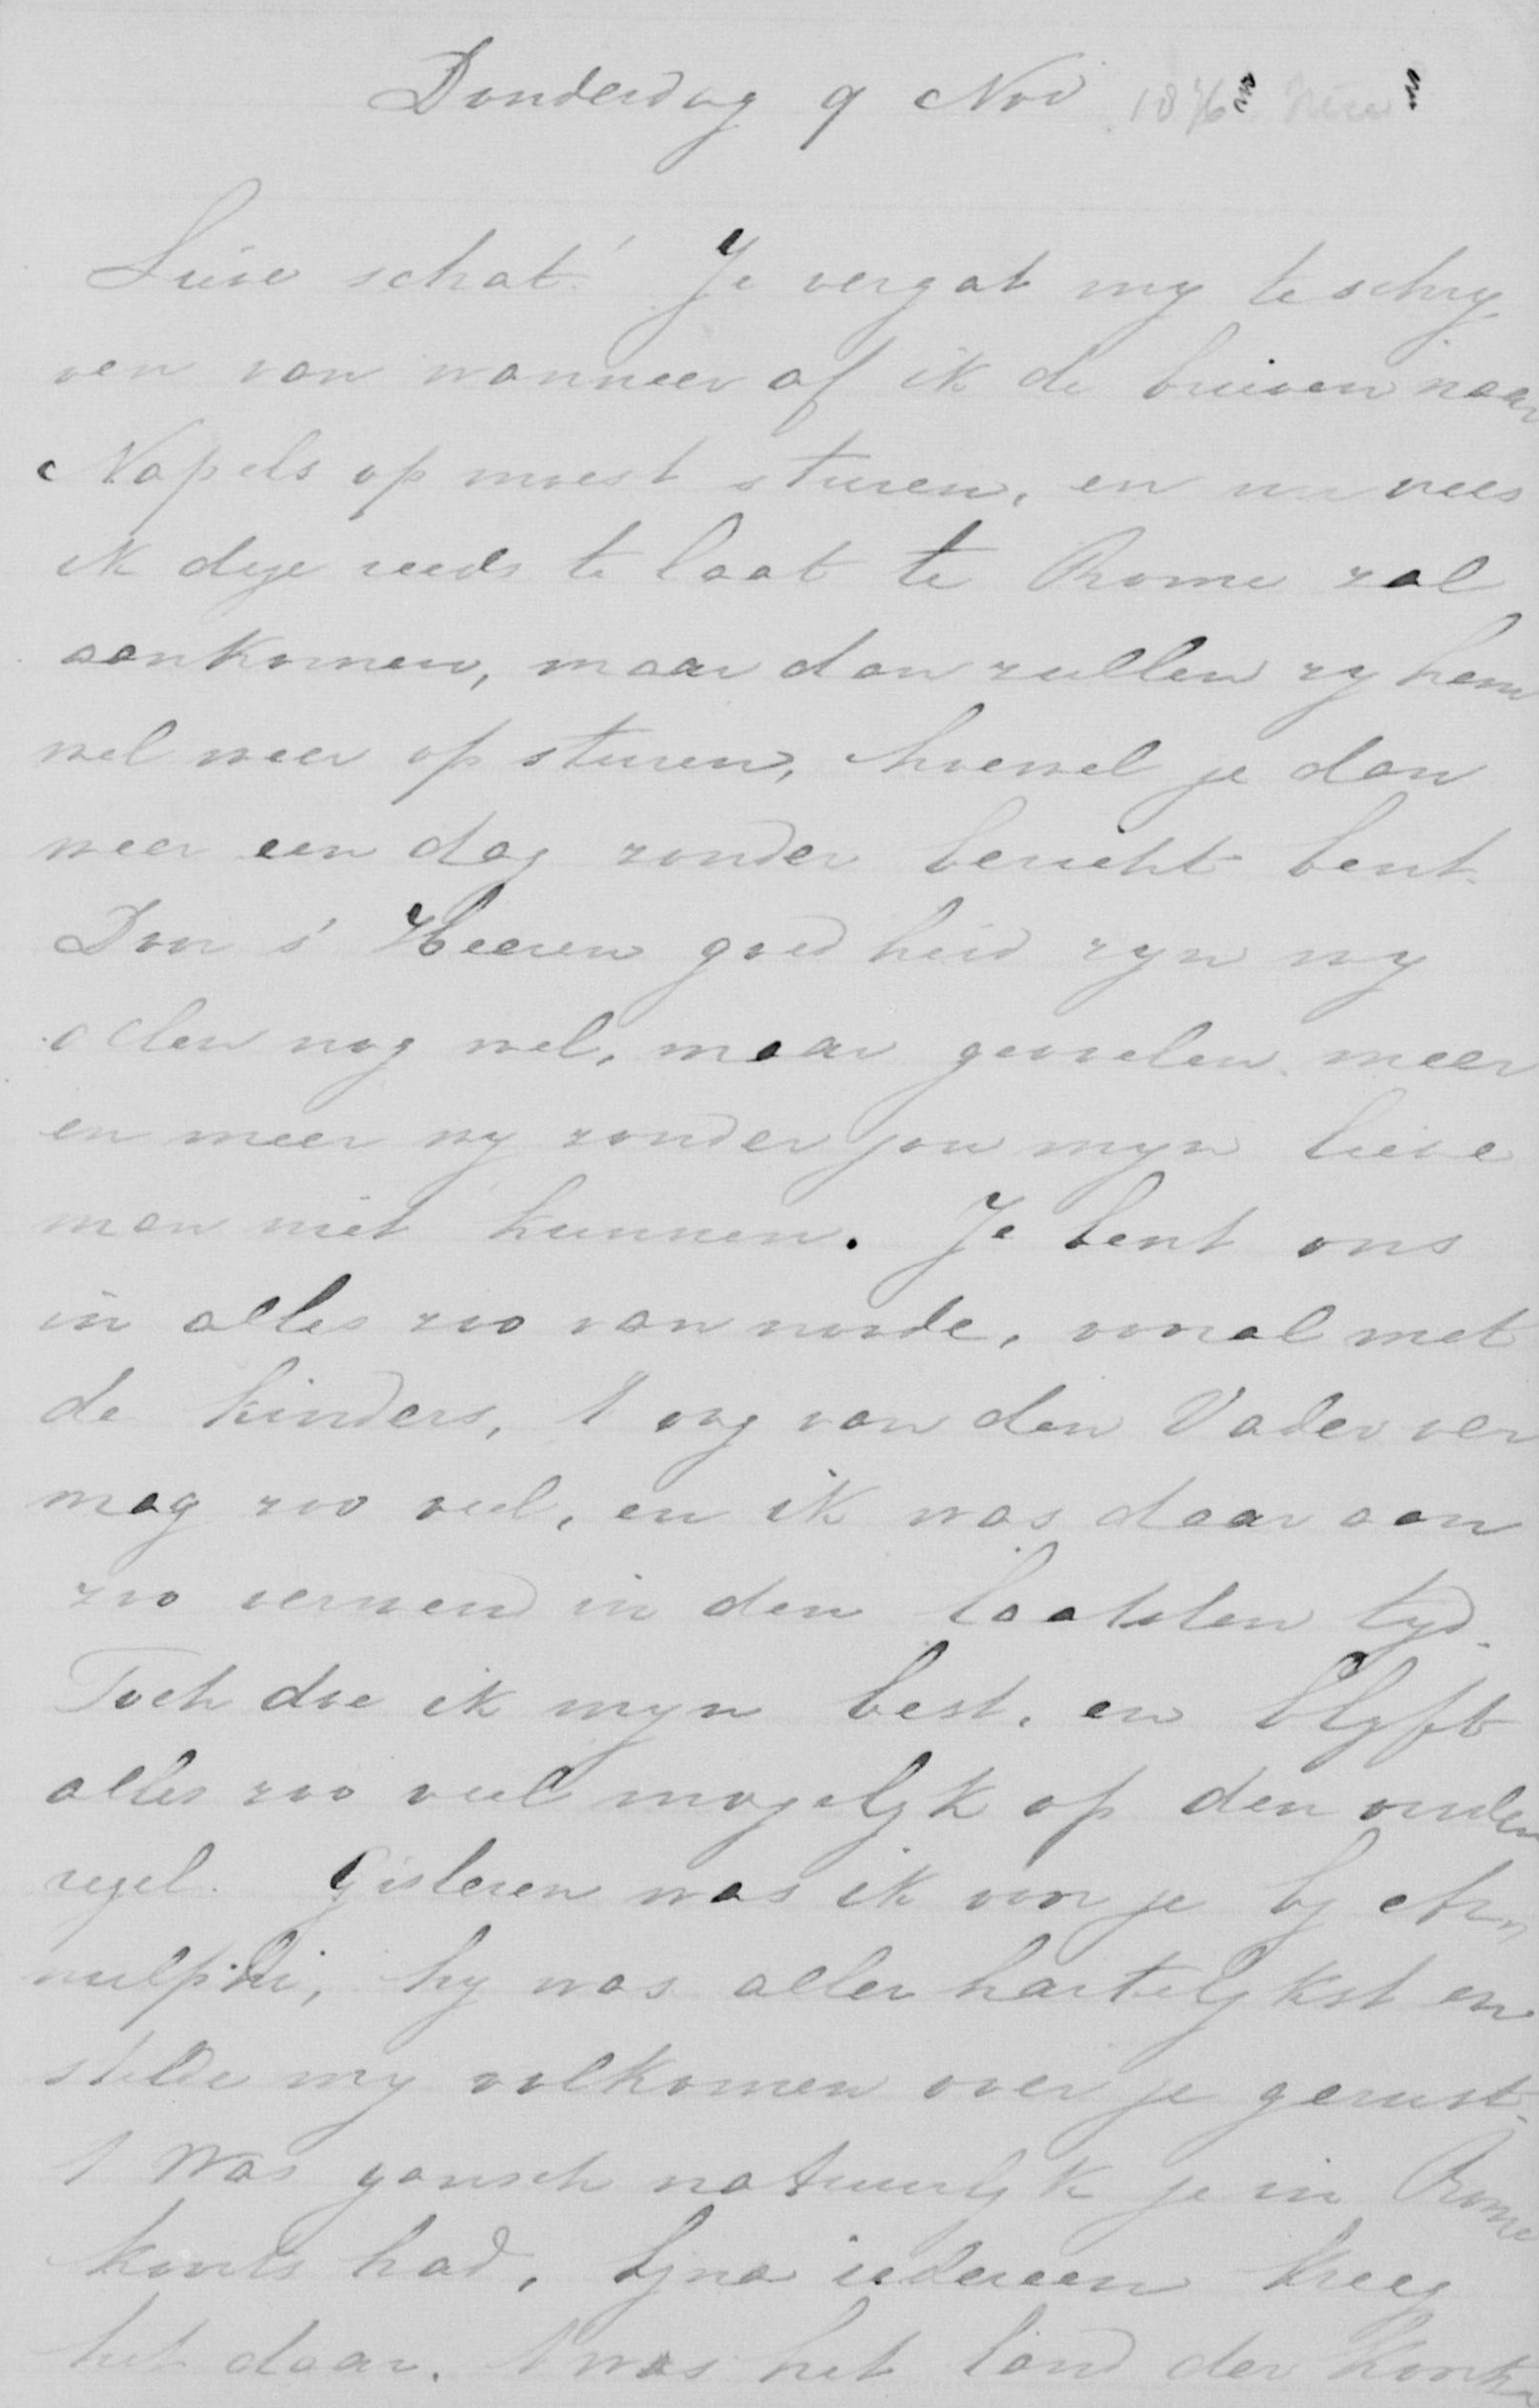 Donderdag 9 Nov 1876 Nice
Lieve schat! Je vergat my te schry
ven van wanneer af ik de brieven naar
Napels op moest sturen, en nu vrees
ik deze reeds te laat te Rome zal
aankomen, maar dan zullen zy hem
wel weer op sturen, hoewel je dan
weer een dag zonder bericht bent.
Door s' Heeren goedheid zyn wy
allen nog wel, maar gevoelen meer
en meer wy zonder jou myn lieve
man niet kunnen. Je bent ons
in alles zoo van noode, vooral met
de kinders, 't oog van den Vader ver
mag zoo veel, en ik was daar aan
zoo verwend in den laatsten tyd.
Toch doe ik myn best, en blyft
alles zoo veel mogelyk op den ouden
regel. Gisteren was ik voor je by Arn
nulphi, hy was aller hartelykst en
stelde my volkomen over je gerust.
't Was gansch natuurlyk je in Rome
koorts had, byna iedereen kreeg
het daar. 't was het land der koorts